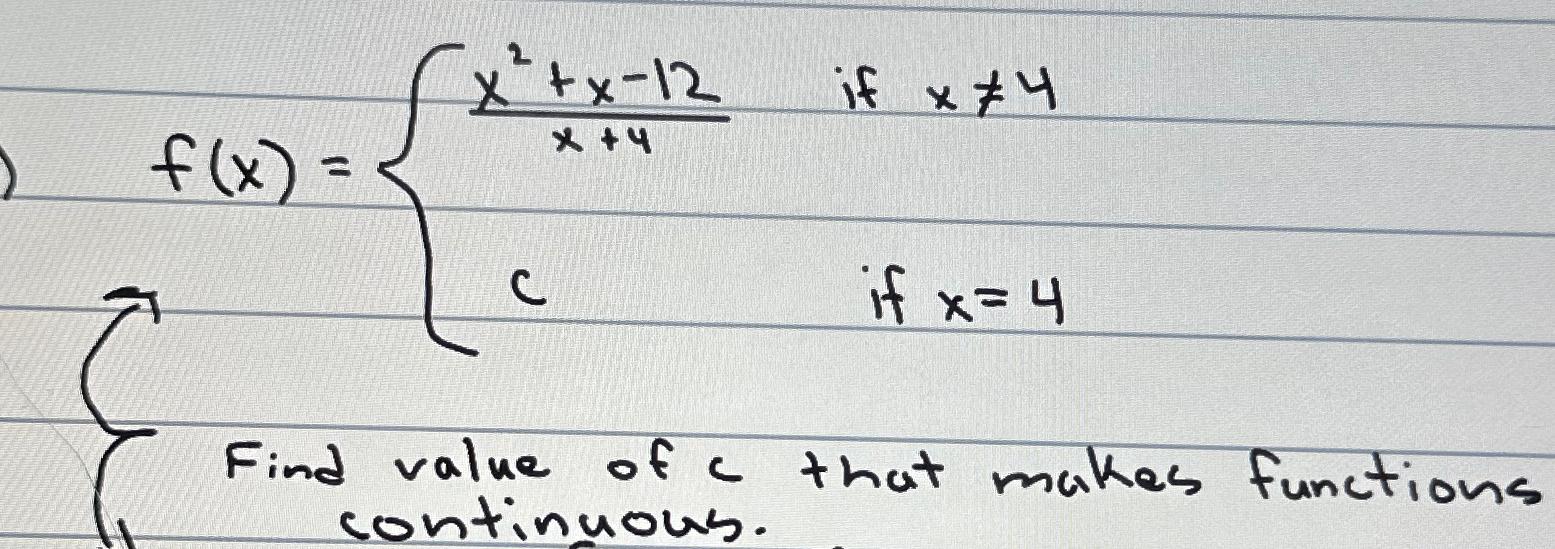 x² + x - 12 if x ≠ 4
x + 4
) f(x) = {
c if x = 4
Find value of c that makes functions
continuous.